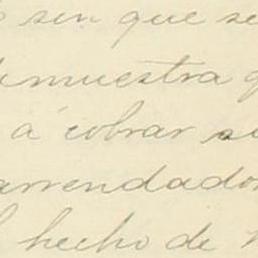 sin que se
demuestra q
á cobrar su
arrendador
l hecho de